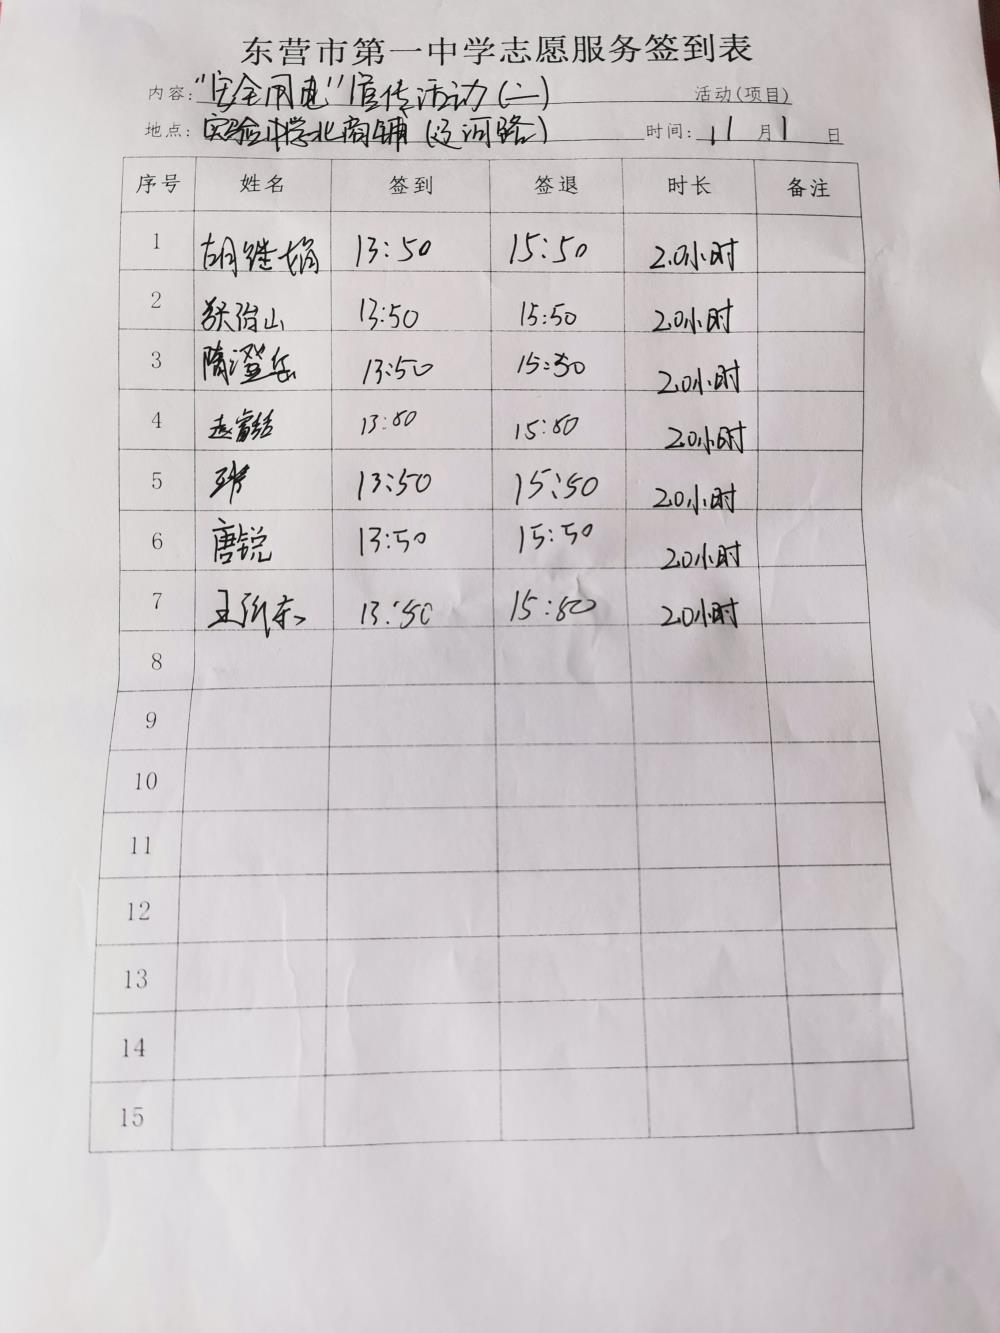 东营市第一中学志愿服务签到表
内容："安全用电"宣传活动(二) 活动(项目)
地点：实验中学北商铺(辽河路) 时间：11月1日
序号 姓名 签到 签退 时长 备注
1 胡继 13:50 15:50 2.0小时
2 张治山 13:50 15:50 2.0小时
3 隋澄岳 13:50 15:50 2.0小时
4 13:50 15:50 2.0小时
5 13:50 15:50 2.0小时
6 唐锐 13:50 15:50 2.0小时
7 王 13:50 15:50 2.0小时
8
9
10
11
12
13
14
15